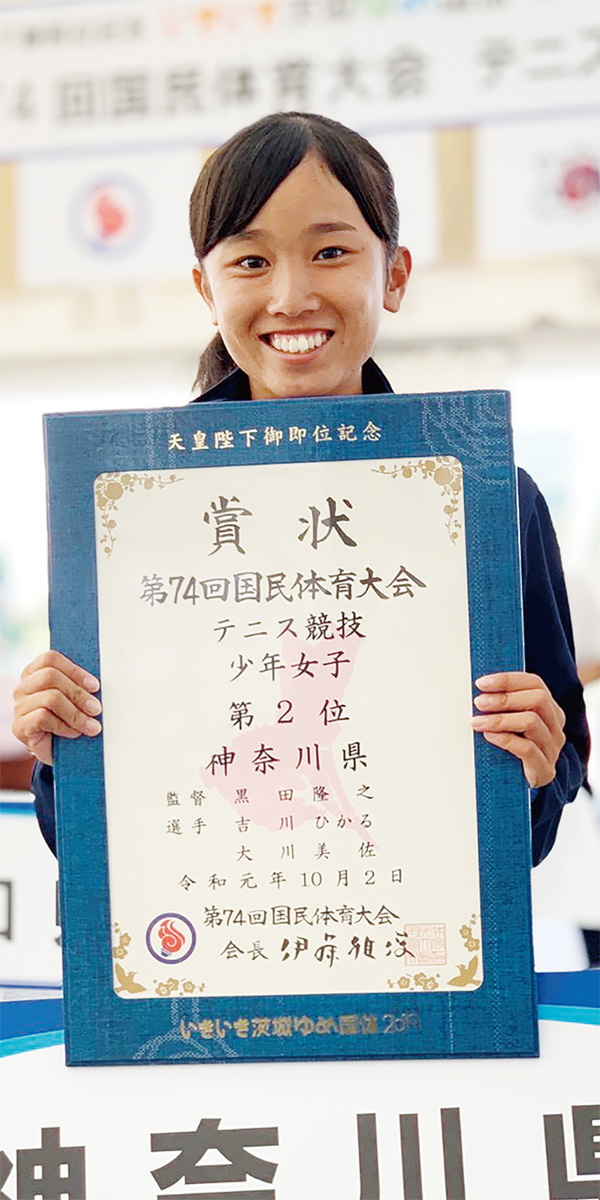 74回国民体育大会 テニス
天皇陛下御即位記念
賞状
第74回国民体育大会
テニス競技
少年女子
第2位
神奈川県
監督 黒田隆之
選手 吉川ひかる
大川美佐
令和元年10月2日
第74回国民体育大会
会長 伊藤雅俊
いきいき茨城ゆめ国体2019
神奈川県